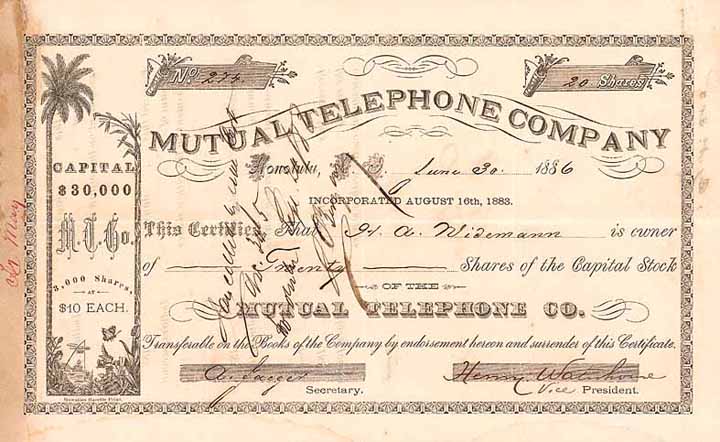 No 234.
20 Shares
MUTUAL TELEPHONE COMPANY
Honolulu, June 30 1886
INCORPORATED AUGUST 16th, 1883.
This Certifies, That H. A. Widemann is owner
of Twenty Shares of the Capital Stock
OF THE
MUTUAL TELEPHONE CO.
Transferable on the Books of the Company by endorsement hereon and surrender of this Certificate.
Secretary.
Henry Vice President.
CAPITAL
$30,000
M.T.Co.
3,000 Shares
AT
$10 EACH.
Hawaiian Gazette Print.